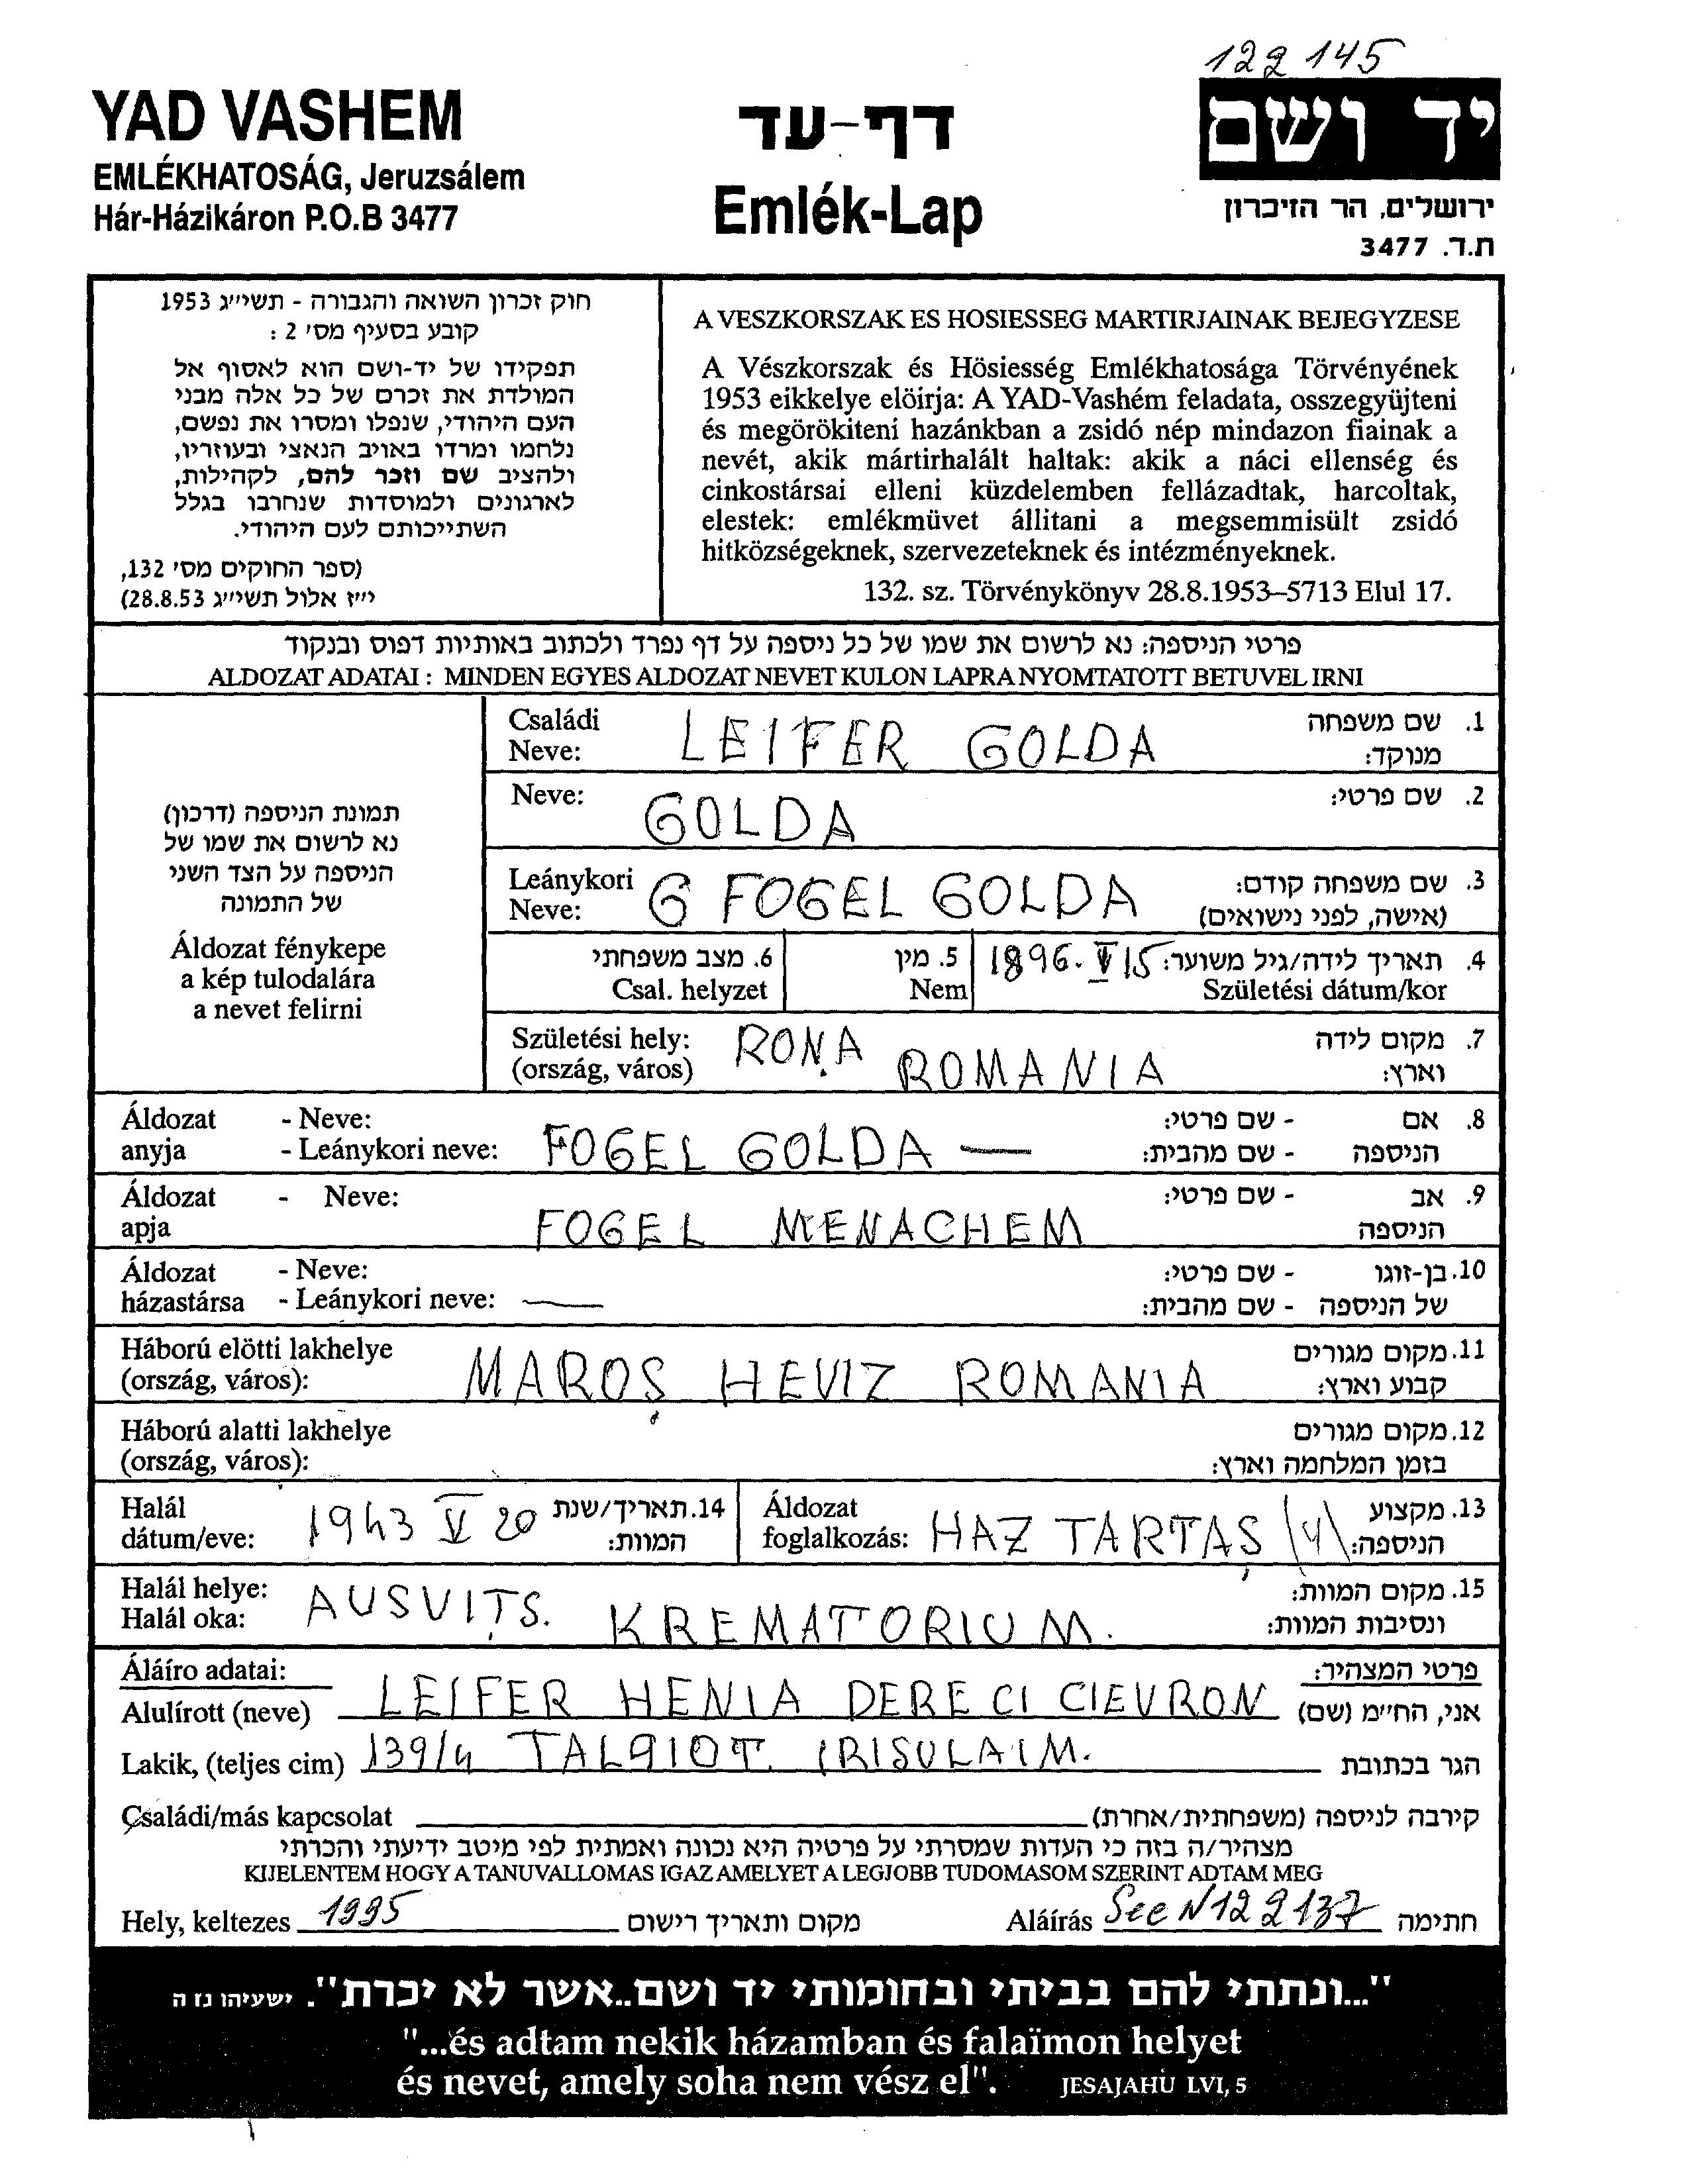 122 145
YAD VASHEM
EMLÉKHATOSÁG, Jeruzsálem
Hár-Házikáron P.O.B 3477
דף-עד
Emlék-Lap
יד ושם
ירושלים, הר הזיכרון
ת.ד. 3477
חוק זכרון השואה והגבורה - תשי״ג 1953
קובע בסעיף מס' 2 :
תפקידו של יד-ושם הוא לאסוף אל
המולדת את זכרם של כל אלה מבני
העם היהודי, שנפלו ומסרו את נפשם,
נלחמו ומרדו באויב הנאצי ובעוזריו,
ולהציב שם וזכר להם, לקהילות,
לארגונים ולמוסדות שנחרבו בגלל
השתייכותם לעם היהודי.
(ספר החוקים מס' 132,
י״ז אלול תשי״ג 28.8.53)
A VESZKORSZAK ES HOSIESSEG MARTIRJAINAK BEJEGYZESE
A Vészkorszak és Hösiesség Emlékhatosága Törvényének
1953 eikkelye elöirja: A YAD-Vashém feladata, osszegyüjteni
és megörökiteni hazánkban a zsidó nép mindazon fiainak a
nevét, akik mártirhalált haltak: akik a náci ellenség és
cinkostársai elleni küzdelemben fellázadtak, harcoltak,
elestek: emlékmüvet állitani a megsemmisült zsidó
hitközségeknek, szervezeteknek és intézményeknek.
132. sz. Törvénykönyv 28.8.1953–5713 Elul 17.
פרטי הניספה: נא לרשום את שמו של כל ניספה על דף נפרד ולכתוב באותיות דפוס ובנקוד
ALDOZAT ADATAI : MINDEN EGYES ALDOZAT NEVET KULON LAPRA NYOMTATOTT BETUVEL IRNI
תמונת הניספה (דרכון)
נא לרשום את שמו של
הניספה על הצד השני
של התמונה
Áldozat fénykepe
a kép tulodalára
a nevet felirni
Családi LEIFER GOLDA 1. שם משפחה
Neve: מנוקד:
Neve: GOLDA 2. שם פרטי:
Leánykori G FOGEL GOLDA 3. שם משפחה קודם:
Neve: (אישה, לפני נישואים)
6. מצב משפחתי 5. מין 1896. V 15 4. תאריך לידה/גיל משוער:
Csal. helyzet Nem Születési dátum/kor
Születési hely: RONA ROMANIA 7. מקום לידה
(ország, város) וארץ:
Áldozat - Neve: - שם פרטי: 8. אם
anyja - Leánykori neve: FOGEL GOLDA — - שם מהבית: הניספה
Áldozat - Neve: - שם פרטי: 9. אב
apja FOGEL MENACHEM הניספה
Áldozat - Neve: - שם פרטי: 10. בן-זוגו
házastársa - Leánykori neve: — - שם מהבית: של הניספה
Háború elötti lakhelye MAROS HEVIZ ROMANIA 11. מקום מגורים
(ország, város): קבוע וארץ:
Háború alatti lakhelye 12. מקום מגורים
(ország, város): בזמן המלחמה וארץ:
Halál 1943 V 20 14. תאריך/שנת Áldozat HAZ TARTAS 13. מקצוע
dátum/eve: המוות: foglalkozás: הניספה:
Halál helye: AUSVITS. KREMATORIUM. 15. מקום המוות:
Halál oka: ונסיבות המוות:
Áláíro adatai: פרטי המצהיר:
Alulírott (neve) LEIFER HENIA DERECI CIEVRON אני, הח״מ (שם)
Lakik, (teljes cim) 139/4 TALPIOT. IRISULAIM. הגר בכתובת
Családi/más kapcsolat קירבה לניספה (משפחתית/אחרת)
מצהיר/ה בזה כי העדות שמסרתי על פרטיה היא נכונה ואמתית לפי מיטב ידיעתי והכרתי
KIJELENTEM HOGY A TANUVALLOMAS IGAZ AMELYET A LEGJOBB TUDOMASOM SZERINT ADTAM MEG
Hely, keltezes 1995 מקום ותאריך רישום Aláírás See N 122 137 חתימה
"...ונתתי להם בביתי ובחומותי יד ושם..אשר לא יכרת". ישעיהו נז ה
"...és adtam nekik házamban és falaïmon helyet
és nevet, amely soha nem vész el". JESAJAHU LVI, 5